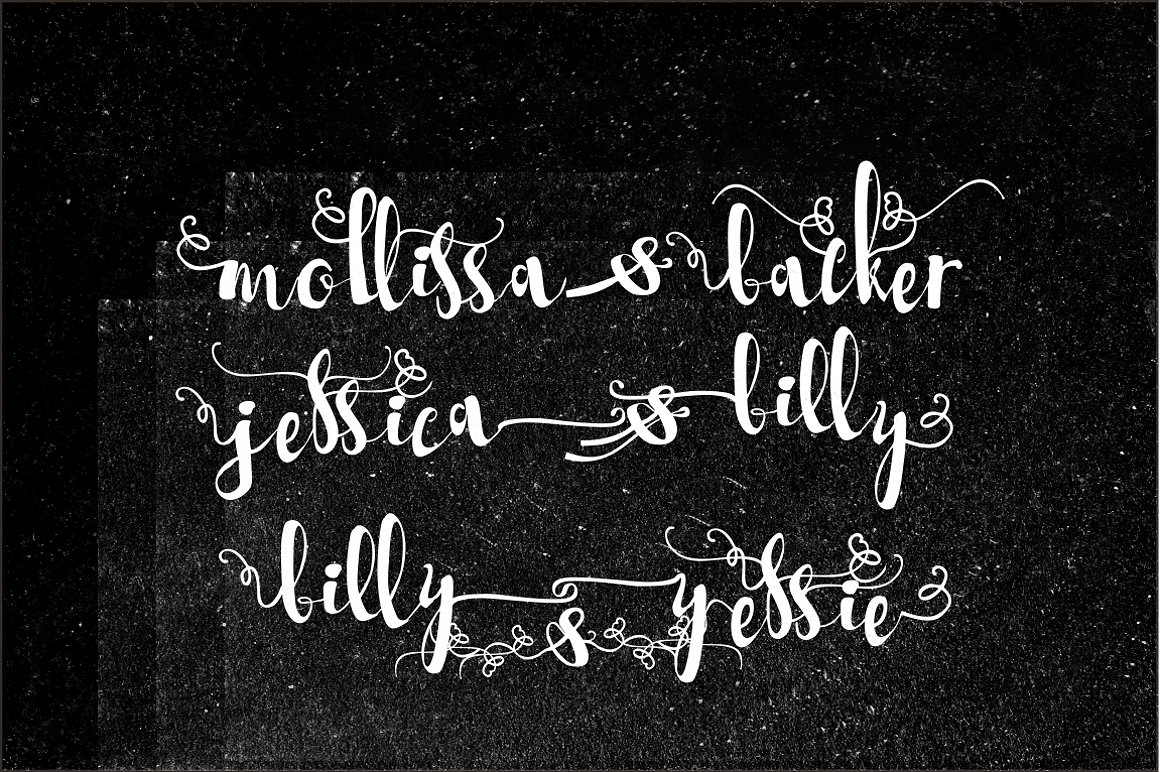 mollissa & backer
jessica & billy
billy & yessie